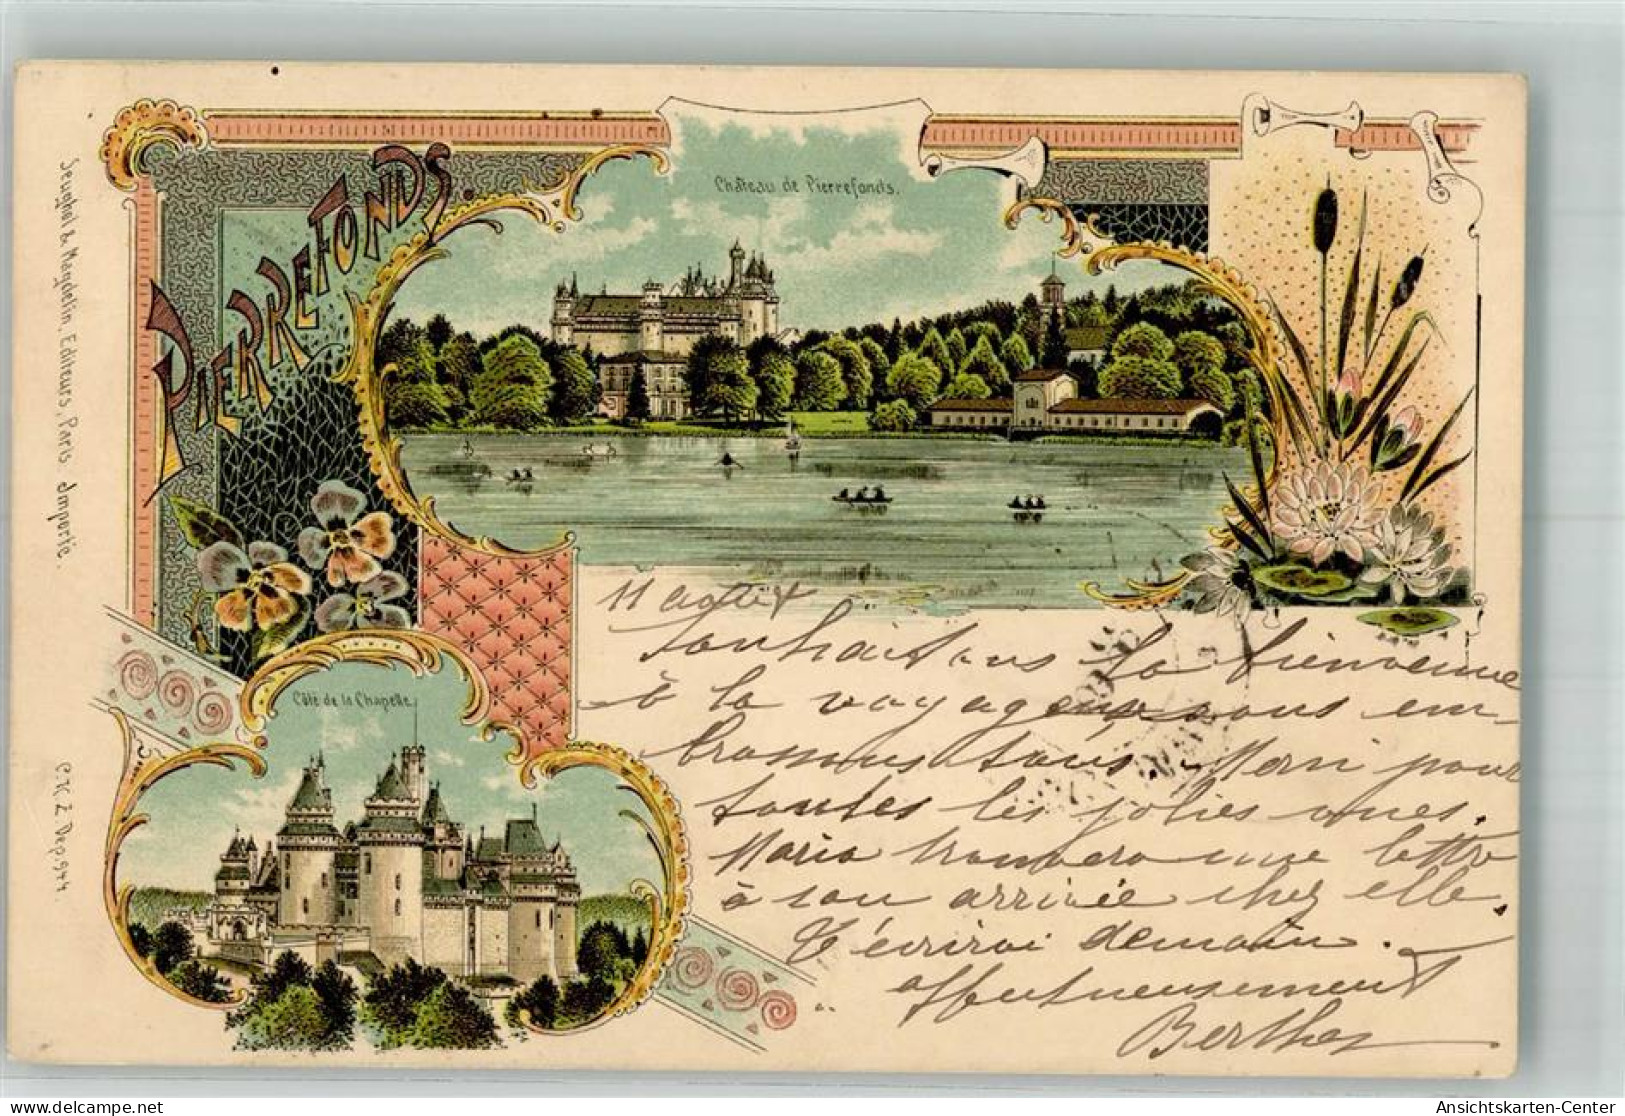 PIERREFONDS.
Château de Pierrefonds.
Côté de la Chapelle.
Seughol & Magdelin, Editeurs, Paris Importé.
C.K.Z. Dep. 944.
11 août
Souhaitons la bienvenue
à la voyageuse vous em-
brassons tous. Merci pour
toutes les jolies vues.
Maria trouvera une lettre
à son arrivée chez elle.
T'écrirai demain.
affectueusement
Berthe
Ansichtskarten-Center